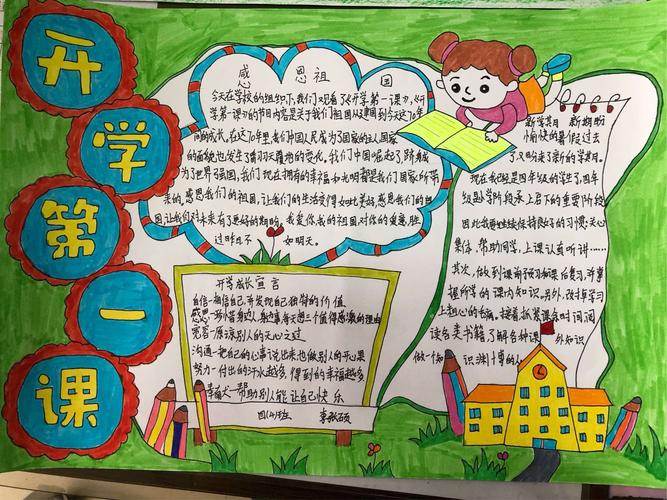 开
学
第
一
课
感恩祖国
今天在学校的组织下,我们观看了《开学第一课》,《开
学第一课》的节目内容是关于我们祖国从建国到今天这70年
间的成长,在这70年里,我们中国人民成为了国家的主人,国家
的面貌也发生了翻习灭覆地的变化,我们中国崛起了,所有成
为了世界强国,我们现在拥有的幸福和光明都是我们国家所带
来的,感恩我们的祖国,让我们的生活变得如此美好,感恩我们的祖
国,让我们对未来有了更好的期盼,我爱你我的祖国,对你的爱意,胜
过昨日不如明天。
新学期 新期盼
愉快的暑假过去
了,又迎来了新的学期。
现在我已经是四年级的学生了,四年
级是小学阶段承上启下的重要阶段
因此我要继续保持良好的习惯:关心
集体,帮助同学,上课认真听讲……
其次,做到课前预习和课后复习,并掌
握所学的课内知识。另外,改掉学习
上粗心的毛病。接着,抓紧课余时间,阅
读各类书籍,了解各种课外知识
做一个知识渊博的人
开学成长宣言
自信—相信自己,并发现自己独特的价值
感恩—
宽容—原谅别人的无心之过
沟通—把自己的心事说出来也做别人的开心果
努力—付出的汗水越多,得到的幸福越多
奉献—帮助别人能让自己快乐
四(4)班